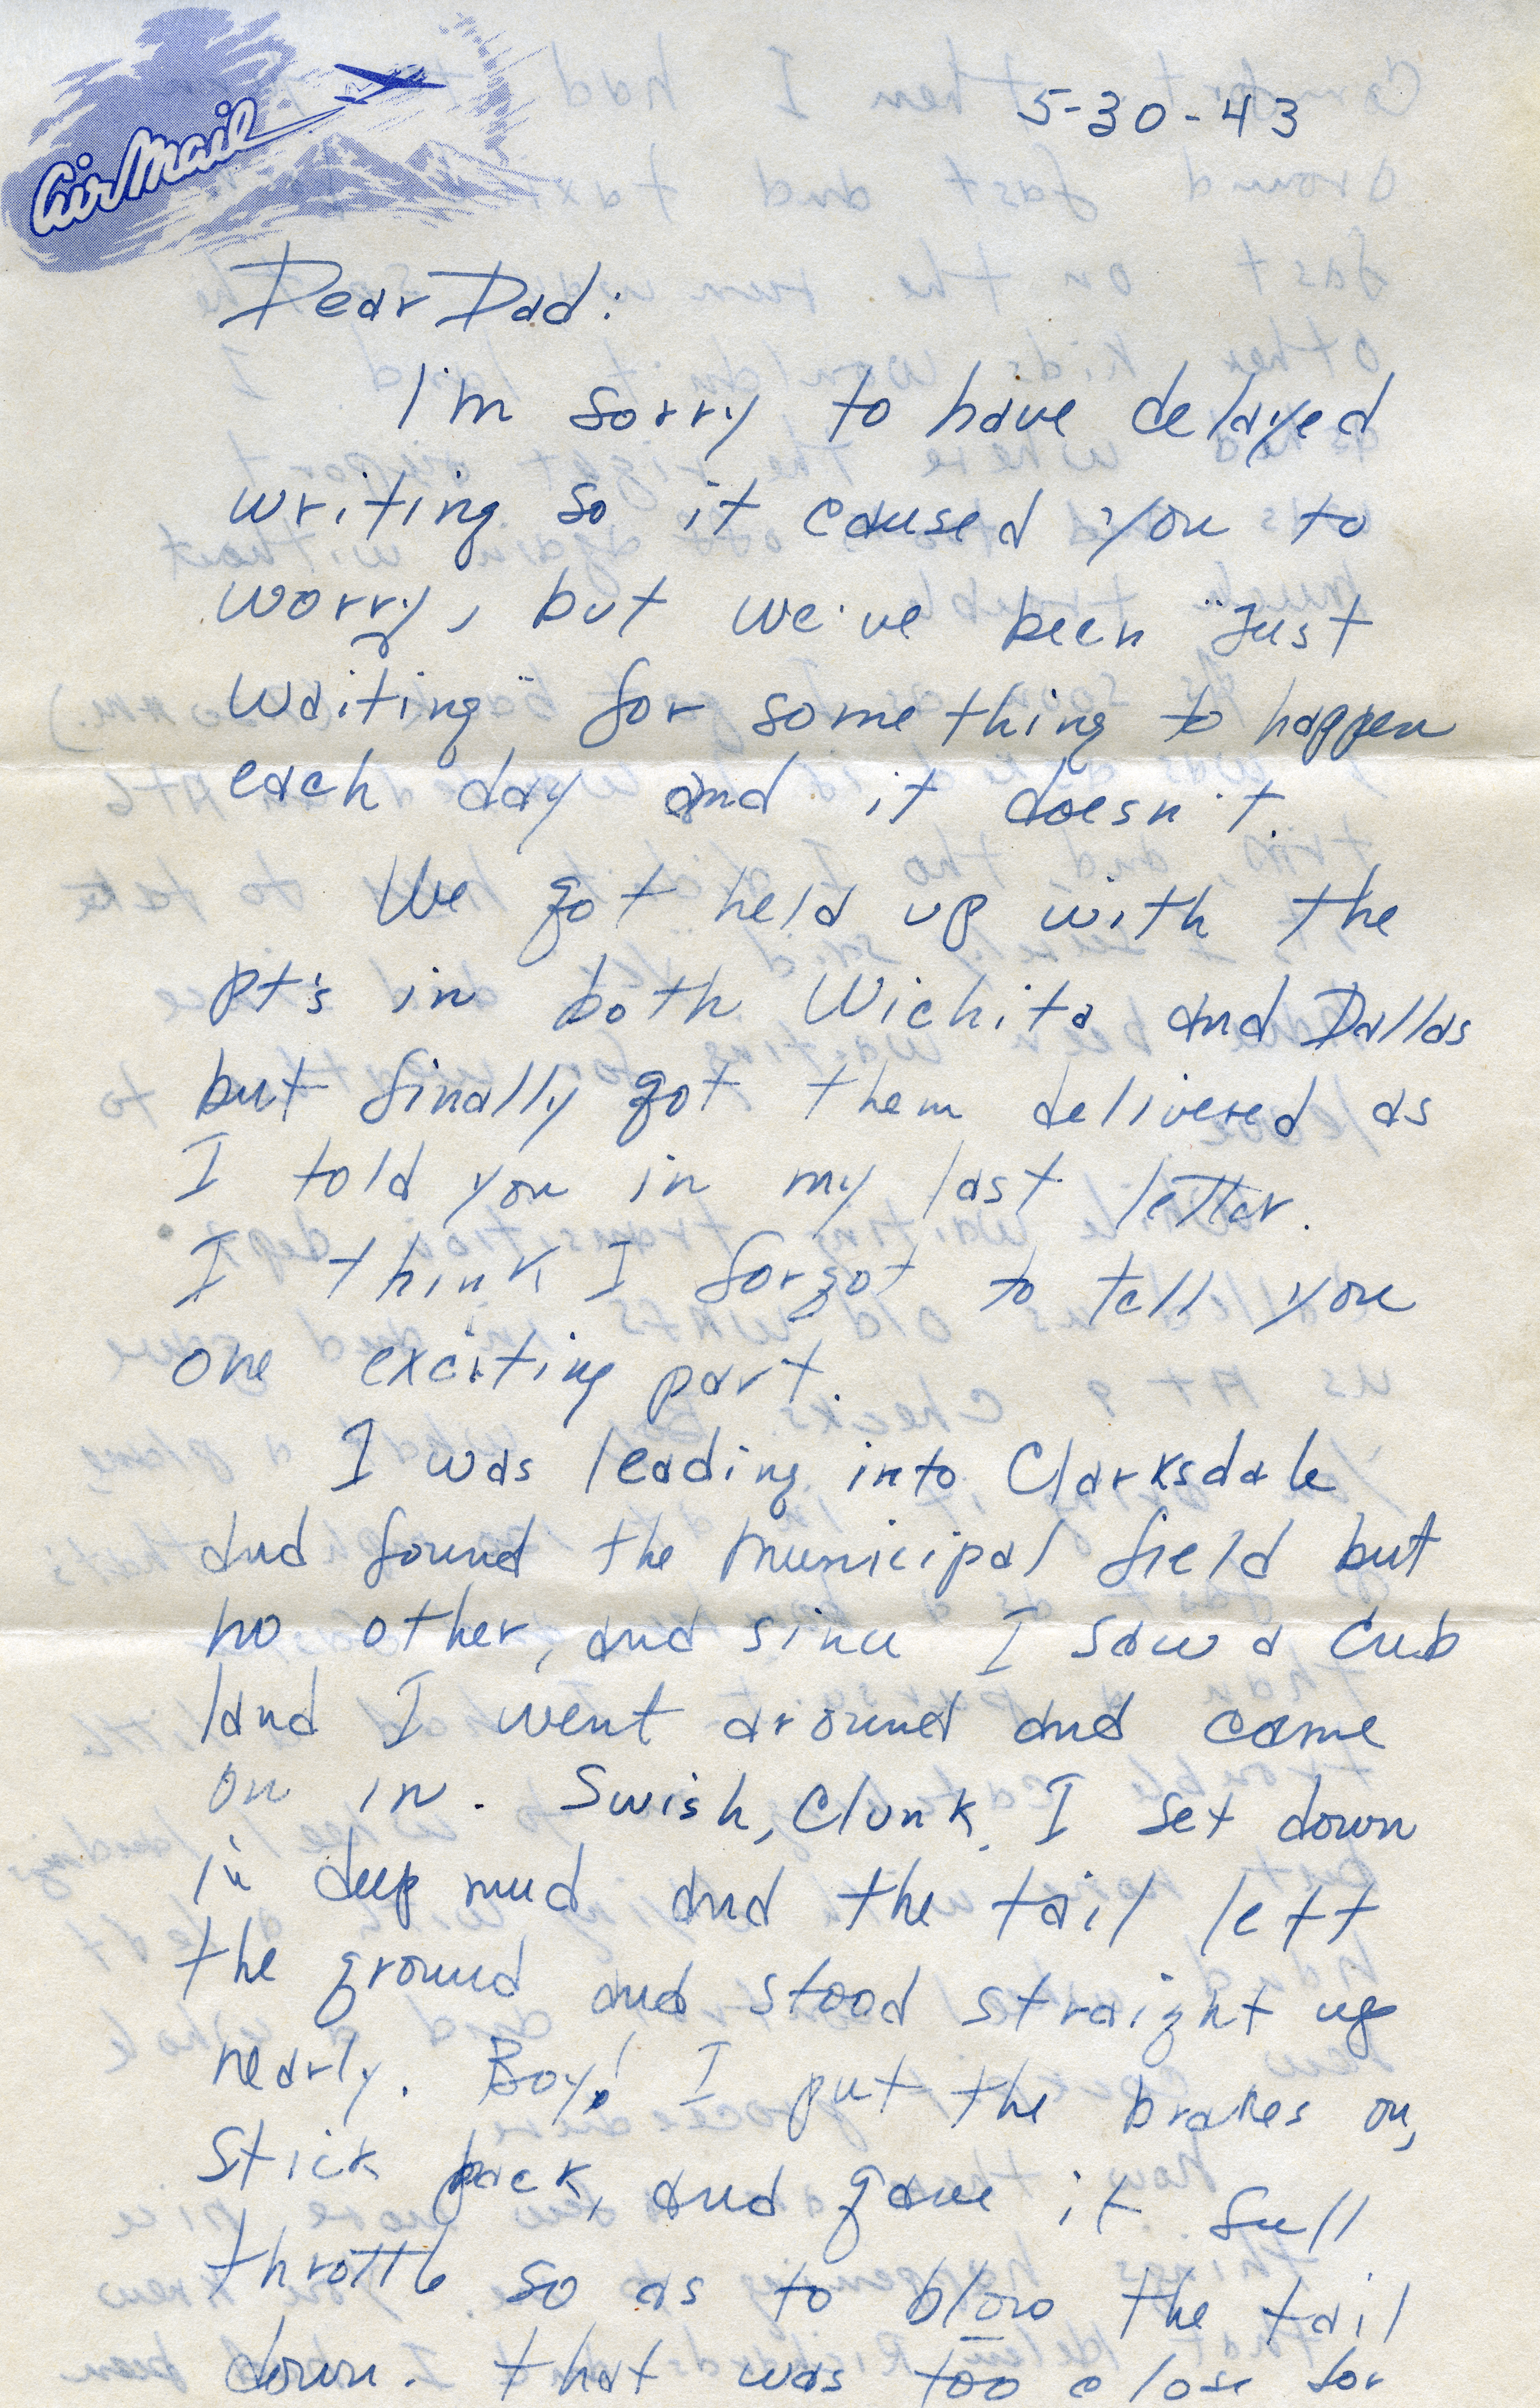 Air Mail
5-30-43
Dear Dad:
I'm sorry to have delayed
writing so it caused you to
worry, but we've been "Just
waiting" for something to happen
each day and it doesn't.
We got held up with the
pt's in both Wichita and Dallas
but finally got them delivered as
I told you in my last letter.
I think I forgot to tell you
one exciting part.
I was leading into Clarksdale
and found the municipal field but
no other, and since I saw a Cub
land I went around and came
on in. Swish, Clunk, I set down
in deep mud and the tail left
the ground and stood straight up
nearly. Boy! I put the brakes on,
stick back, and gave it full
throttle so as to blow the tail
down. That was too close for